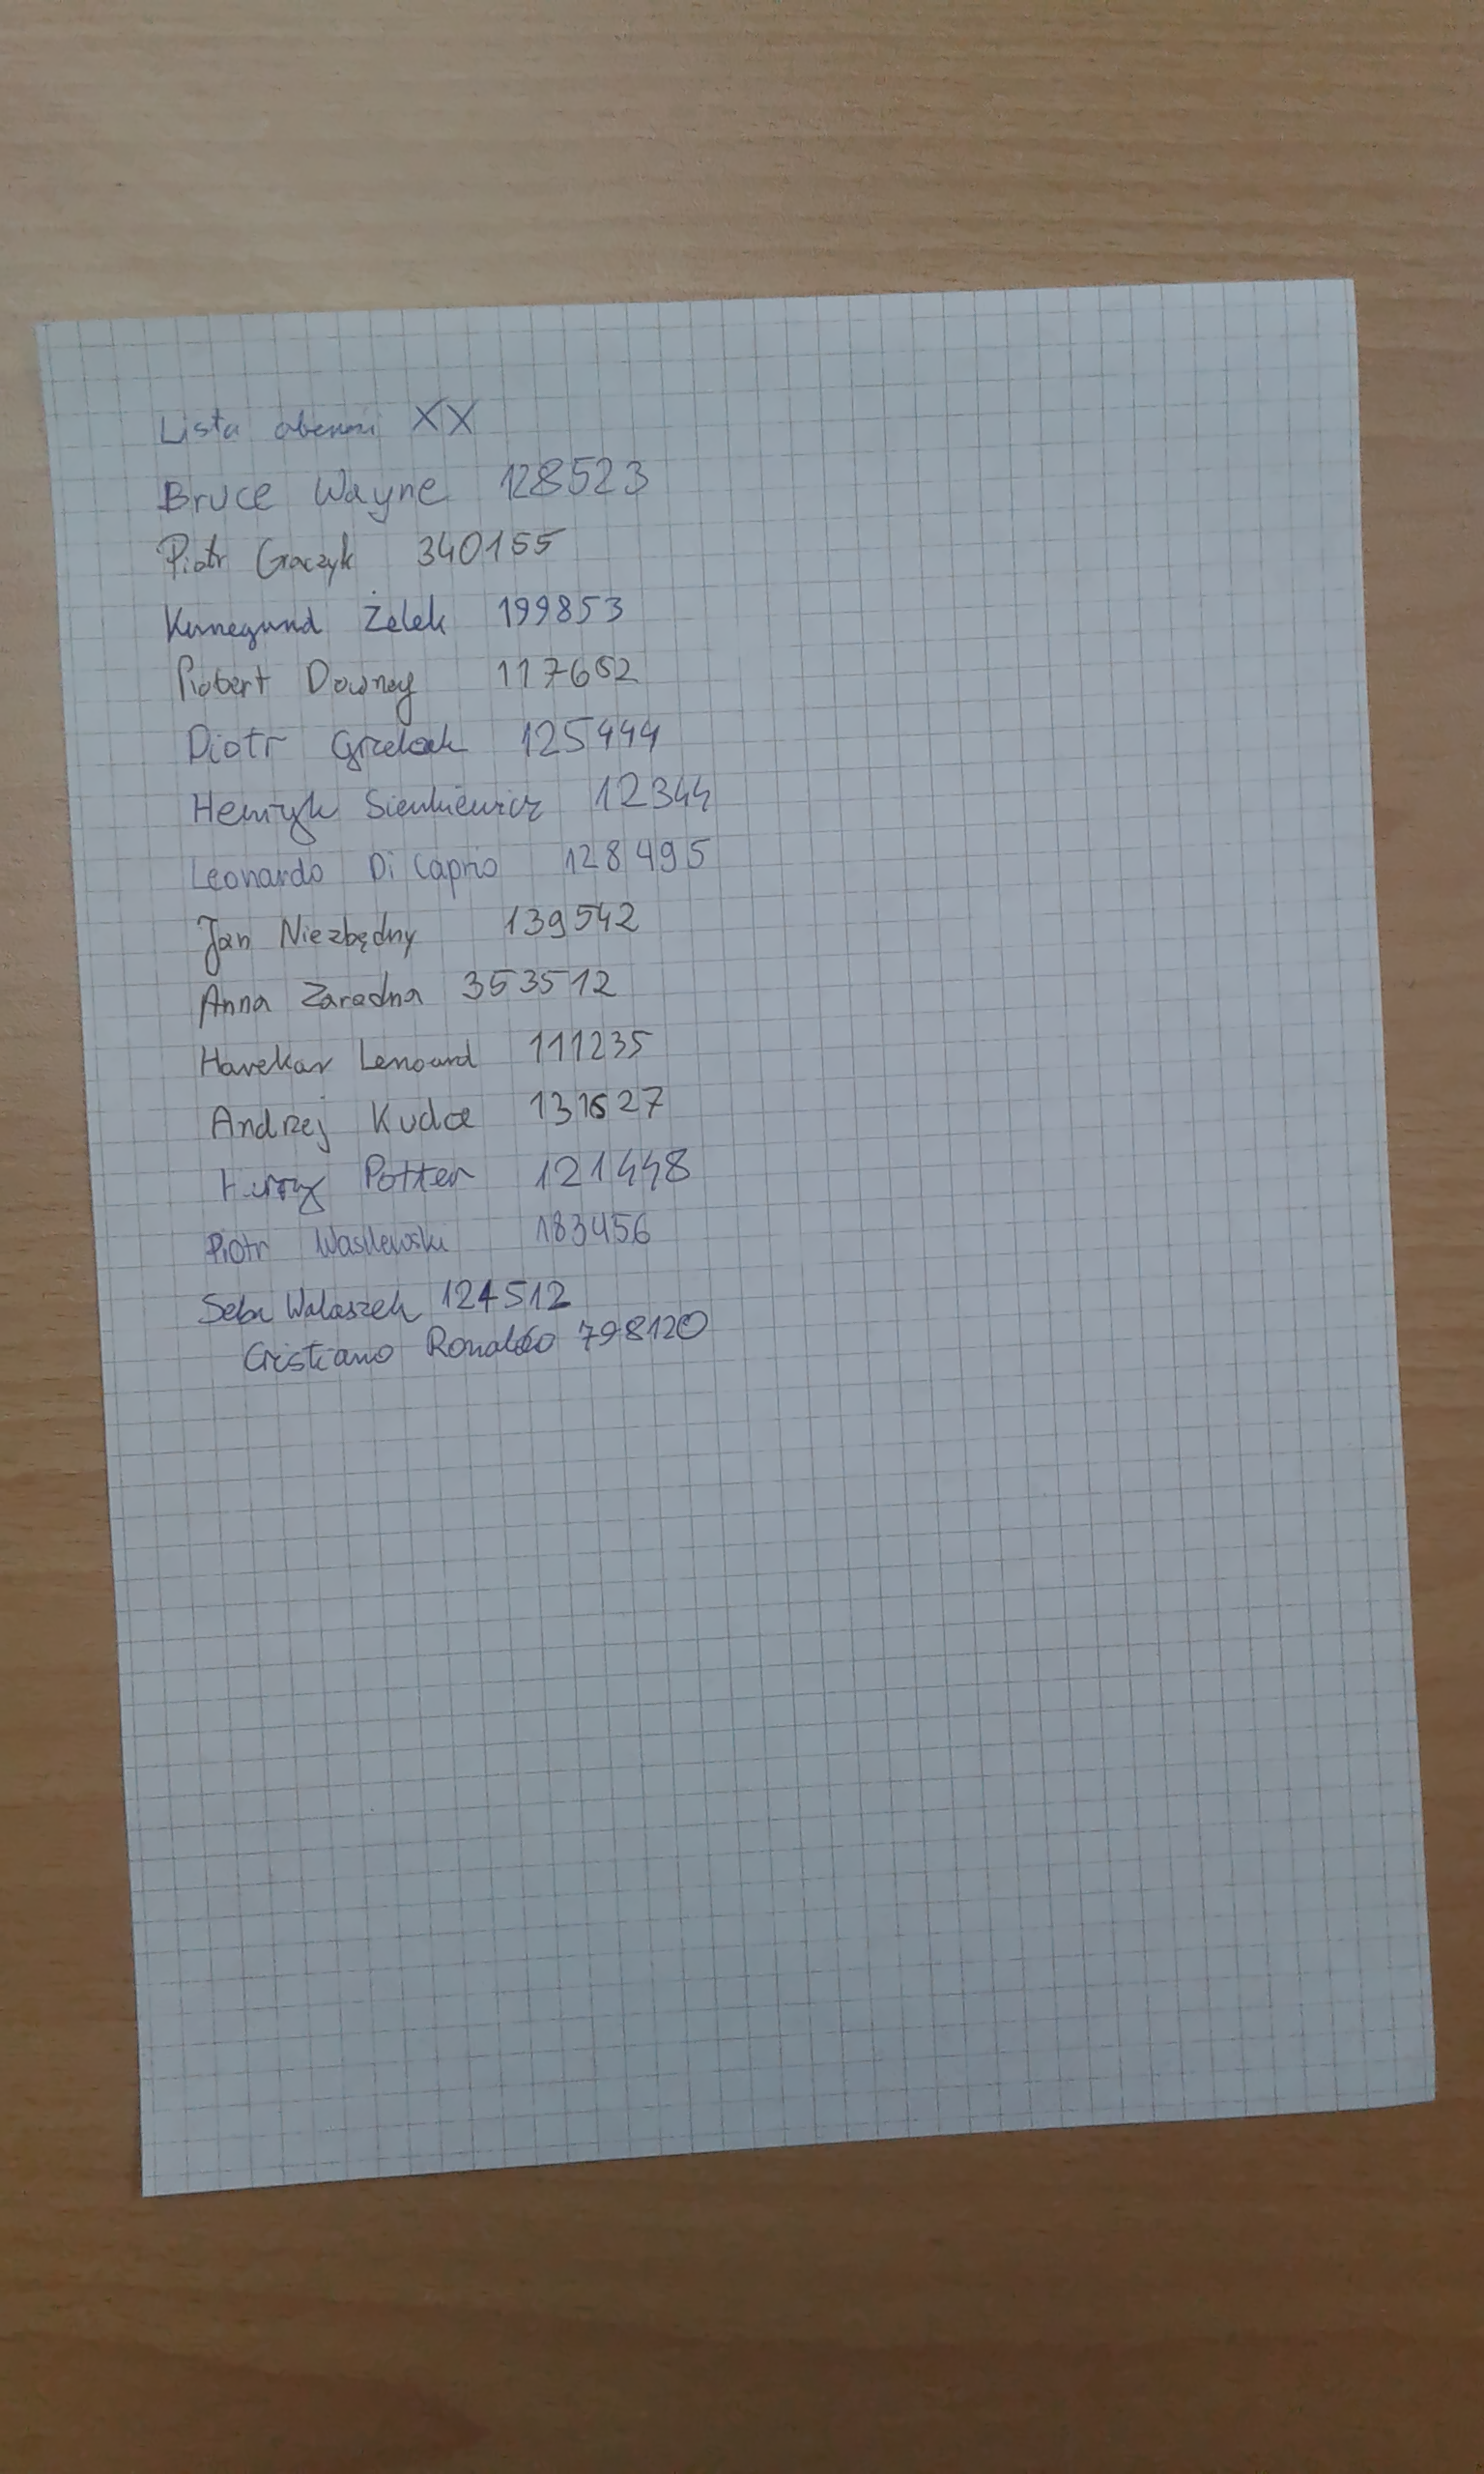 Lista obecności XX
Bruce Wayne 128523
Piotr Graczyk 340155
Kunegund Żelek 199853
Robert Downey 117652
Piotr Grzelak 125444
Henryk Sienkiewicz 12344
Leonardo Di Caprio 128495
Jan Niezbędny 139542
Anna Zaradna 353512
Harekar Lenoard 111235
Andrzej 131527
Potter 121448
Piotr Wasilewski 183456
Seba Walaszek 124512
Cristiano Ronaldo 798120